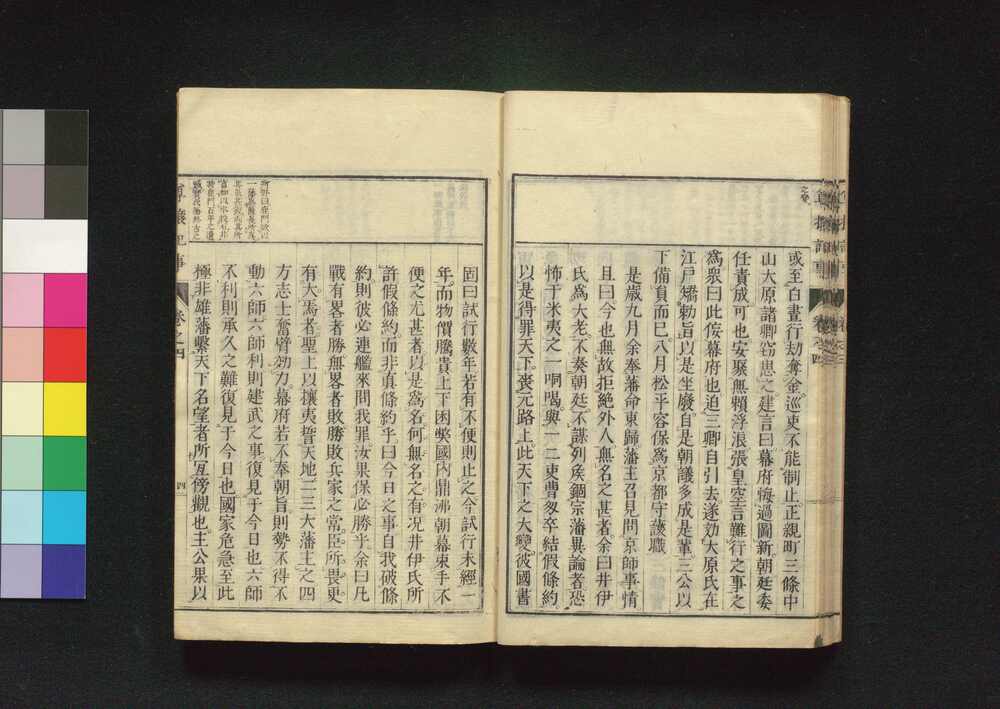 或至白晝行劫奪金巡吏不能制止正親町三條中
山大原諸卿窃患之建言曰幕府悔過圖新朝廷委
任責成可也安聚無頼浮浪張皇空言難行之事之
爲衆曰此侫幕府也迫三卿自引去遂劾大原氏在
江戸矯勅旨以是坐廢自是朝議多成是輩三公以
下備員而已八月松平容保爲京都守護職
是歲九月余奉藩命東歸藩主召見問京師事情
且曰今也無故拒絶外人無名之甚者余曰井伊
氏爲大老不奏朝廷不謀列矦錮宗藩異論者恐
怖于米夷之一哃喝與一二吏曹匆卒結假條約
以是得罪天下喪元路上此天下之大變彼國書
固曰試行數年若有不便則止之今試行未經一
年而物價騰貴上下困弊國内鼎沸朝幕束手不
便之尤甚者以是爲名何無名之有况井伊氏所
許假條約而非眞條約乎曰今日之事自我破條
約則彼必連艦來問我罪汝果保必勝乎余曰凡
戰有畧者勝無畧者敗勝敗兵家之常臣所畏更
有大焉者聖上以攘夷誓天地二三大藩主之四
方志士奮臂効力幕府若不奉朝旨則勢不得不
動六師六師利則建武之事復見于今日也六師
不利則承久之難復見于今日也國家危急至此
極非雄藩繫天下名望者所亙傍觀也主公果以
卷之四
四